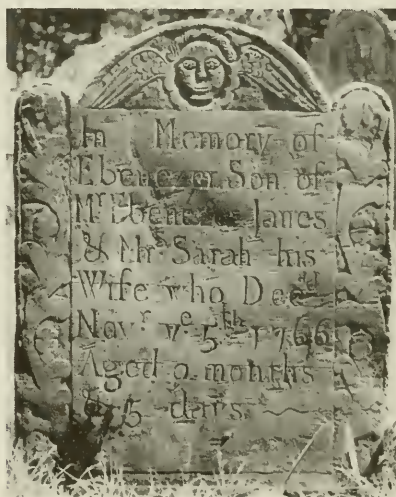 In Memory of
Ebenezer Son of
Mr Ebenezer Janes
& Mrs Sarah his
Wife who Decd
Novr ye 5th 1766
Aged 9 months
& 5 days